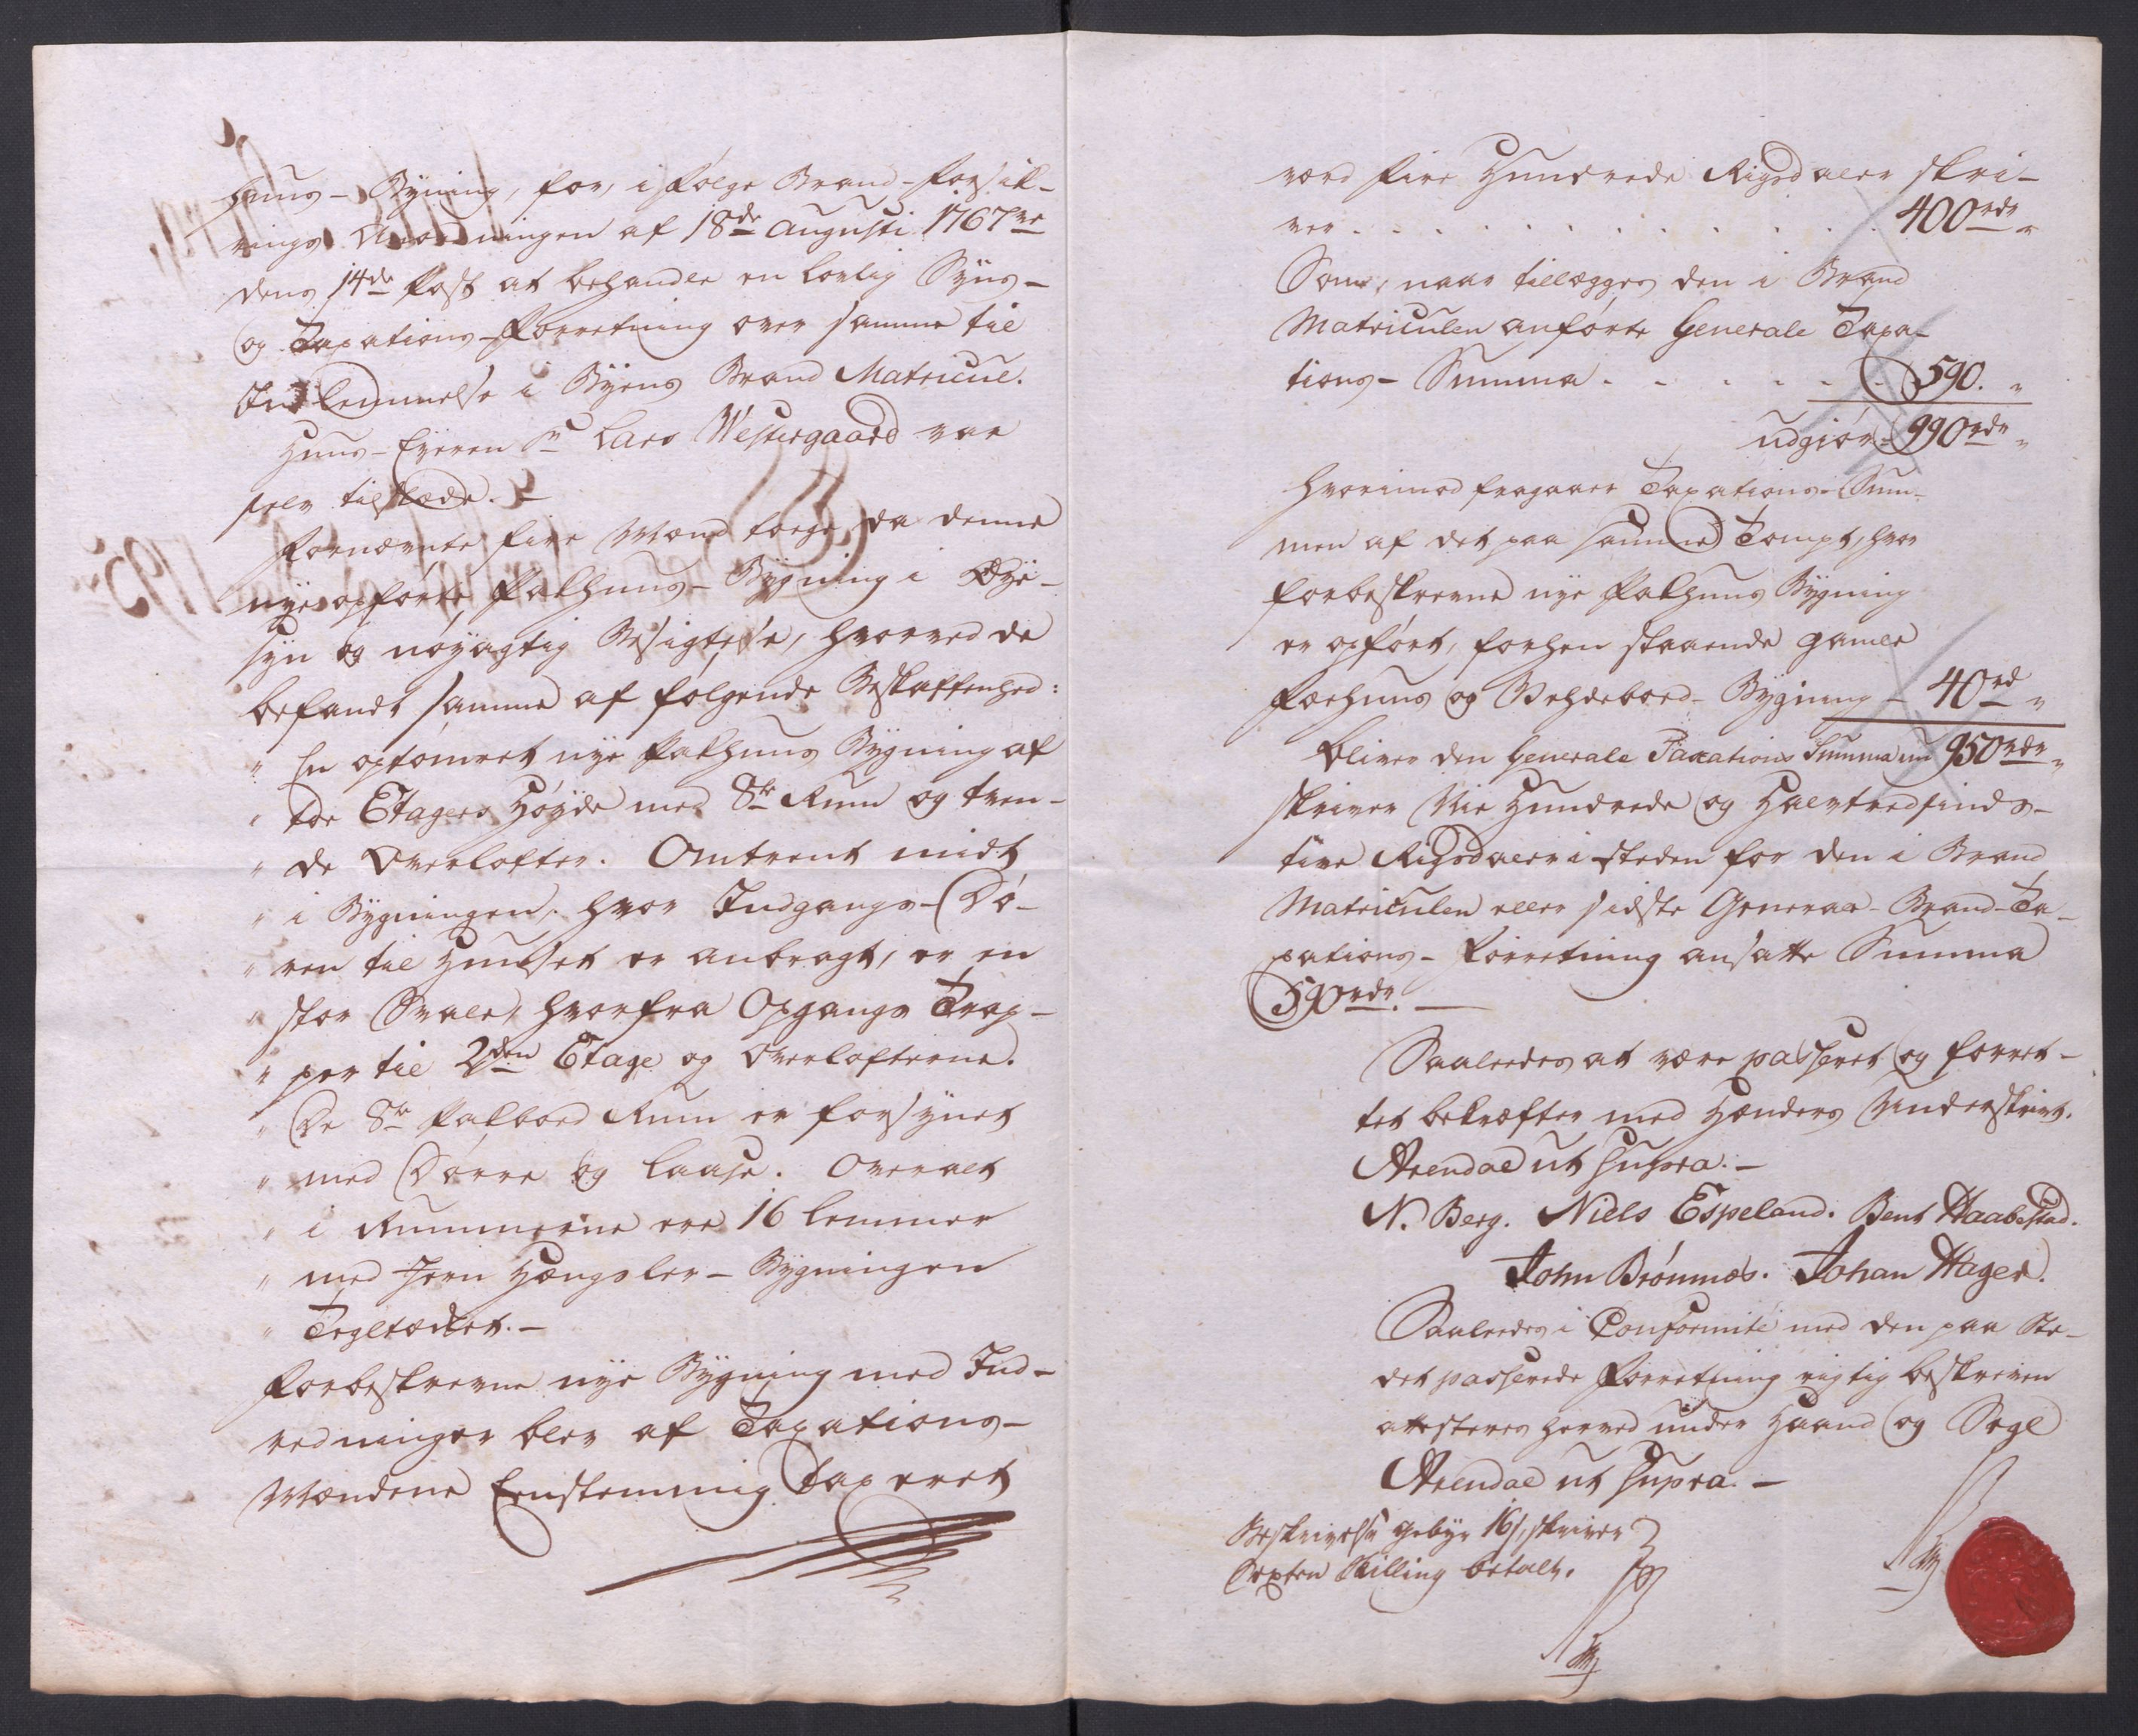 huus-Bygning, for, i følge Brand-forsik-
rings Anordningen af 18de Augusti 1767 ve
dens 14de Post at behandle en lovlig Syns-
og Taxations-Forretning over samme til
Indlemmelse i Byens Brand Matricul.
Huus-Eyeren Sr Lars Westergaard var
selv tilstæde. -
Fornævnte fire Mænd toege da denne
nye opførte Pakhuus-Bygning i Øye-
syn og nøyagtig Besigtelse, hvorved de
befandt samme af følgende Beskaffenhed:
" En optømret nye Pakhuus Bygning af
" toe Etagers Høyde med 8te Rum og tven-
" de Overlofter. Omtrent midt
" i Bygningen, hvor Indgangs-Dø-
" ren til Huuset er anbragt, er en
" stor Svale, hvorfra Opgangs Trap-
" per til 2den Etage og Overlofterne.
" De 8te Pakboed Rum er forsynet
" med Dørre og Laase. Overalt
" i Rummerne ere 16 Lemmer
" med Jern Hængsler - Bygningen
" Tegltædket. -
Forbeskrevne nye Bygning med Ind-
redninger blev af Taxations-
Mændene Eenstemmig taxeret
værd fire Hundrede Rigsdaler skri-
ver . . . . . . . . . . . . 400 rdr "
Som, naar tillægges den i Brand
Matriculen anførte Generale Taxa-
tions-Summa . . . . . . 590. "
udgiør 990 rdr "
hvorimod fragaaer Taxations-Sum-
men af det paa samme Tompt, hvor
forbeskrevne nye Pakhuus Bygning
er opført, forhen staaende gamle
Færhuus og Behdeboed-Bygning - 40 rd "
bliver den Generale Taxations Summa nu 950 rdr "
skriver Nie Hundrede og Halvtredsinds-
tive Rigsdaler i steden for den i Brand
Matriculen eller sidste General-Brand-Ta-
xations-Forretning ansatte Summa
590 rdr. -
Saaledes at være passeret og forret-
tet bekræfter med Hænders Underskrivt.
Arendal ut supra. -
N. Berg. Niels Espeland. Bent Haabestad.
John Brómnæs. Johan Hager.
Saaledes i Conformité med den paa Ste-
det passerede Forretning rigtig beskreven
attesteres herved under Haand og Segl
Arendal ut supra. -
Beskrivelse gebyr 16 s, skriver
Sexten Skilling betalt.